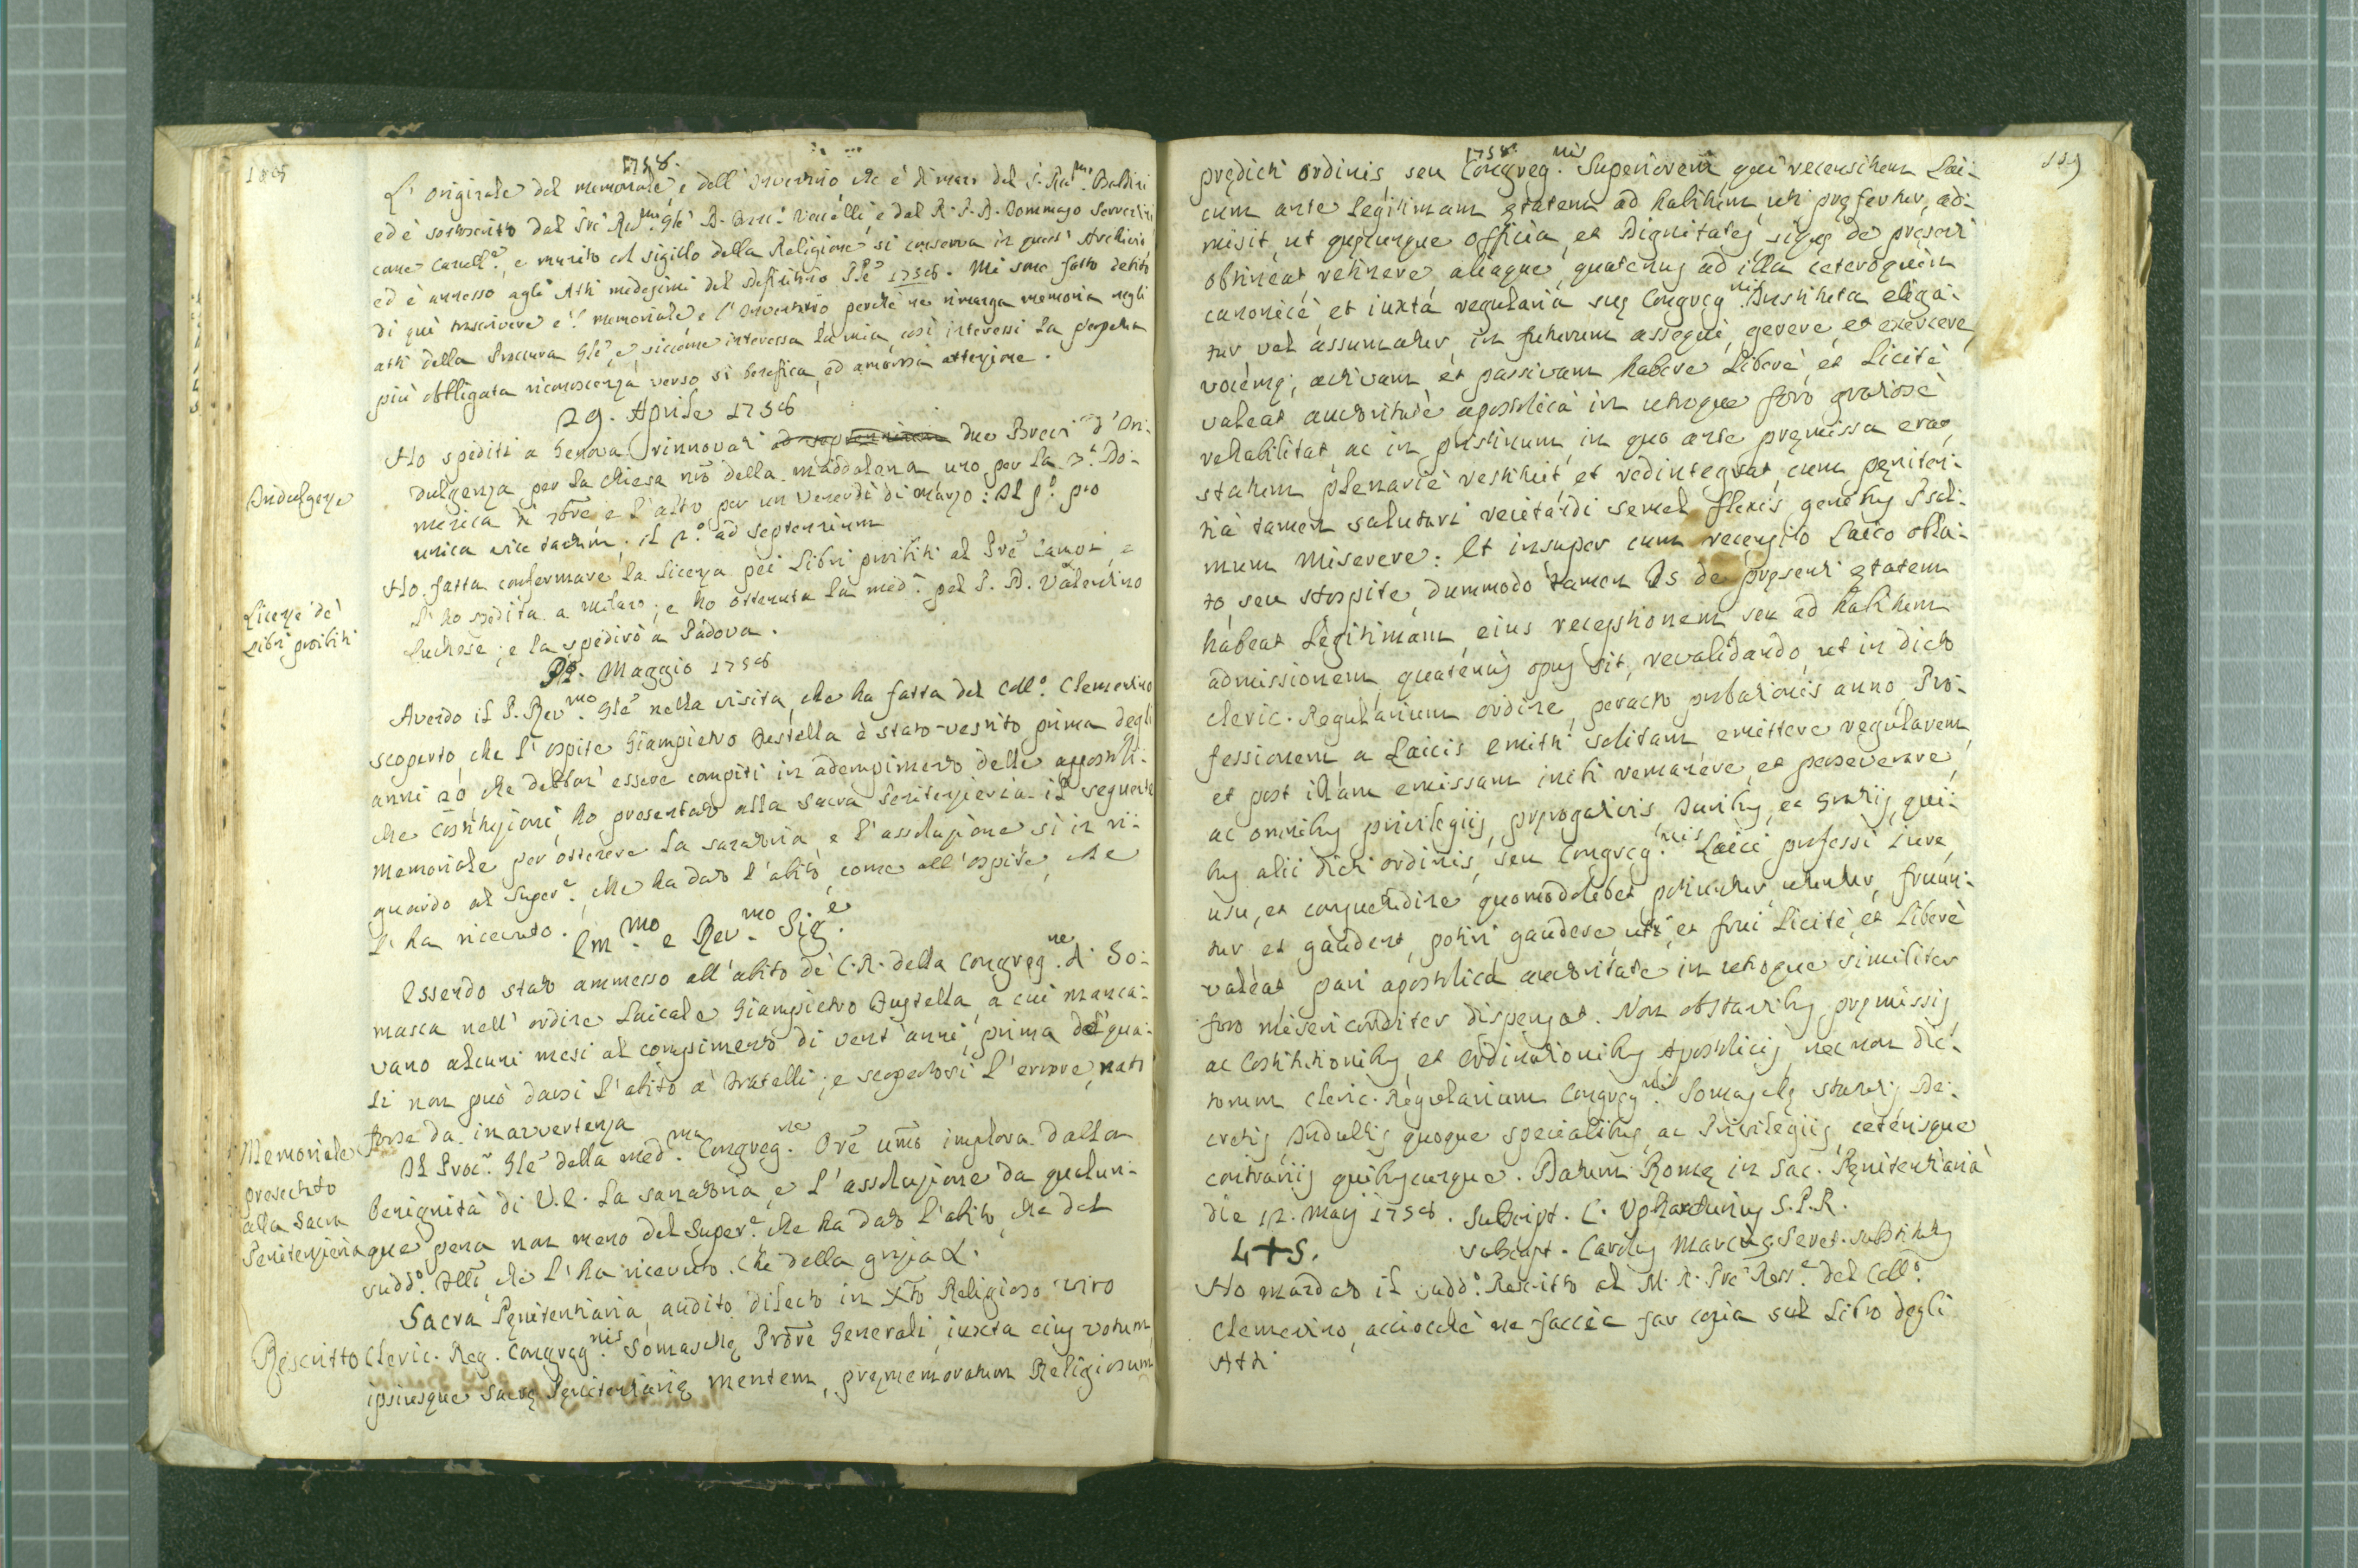 1758.
L' originale del memoriale, e dell' Inventario che è di mano del P. Rev.mo Baldini
ed è sottoscritto dal Prē Rev.mo Glē D. Vercelli, e dal R. P. D. Tommaso
come Cancell.e, e munito col sigillo della Religione si conserva in quest' Archivio,
ed è annesso agli Atti medesimi del Definitorio 1758. Mi sono fatto debito
di quì trascrivere e 'l memoriale e l' Inventario perchè ne rimanga memoria negli
atti della Procura Glē, e siccome interessa la mia, così interessi la perpetua
più obbligata riconoscenza verso sì benefica, ed amorosa attenzione.
29. Aprile 1758
Indulgenze
Ho spediti a Genova rinnovati due Brevi d' In-
dulgenza per la Chiesa nrā della Maddalena uno per la 3.a Do-
menica di 7bre e l' altro per un Venerdì di Marzo: Il p.o pro
unica vice tantum, il 2.o ad septennium
Licenze de'
Libri proibiti
Ho fatta confermare la licenza pei Libri proibiti al Prē e
l' ho spedita a Milano; e ho ottenuta la med.a pel P. D. Valentino
Luchese; e la spedirò a Padova.
Maggio 1758
Avendo il P. Rev.mo Glē nella visita, che ha fatta del Coll.o Clementino
scoperto, che l' ospite Giampietro è stato vestito prima degli
anni 20, che debbon' essere compiti in adempimento delle apposto-
che Costituzioni, ho presentato alla Sacra Penitenzieria il seguente
Memoriale per ottenere la sanatoria, e l' assoluzione sì in ri-
guardo al Super.e, che ha dato l' abito, come all' ospite, che
l' ha ricevuto.
Em.mo e Rev.mo Sig.e
Essendo stato ammesso all' abito de' C. R. della Congreg.ne di So-
masca nell' ordine Laicale Giampietro, a cui manca-
vano alcuni mesi al compimento di vent' anni, prima de' qua-
li non può darsi l' abito a' Fratelli; e scopertosi l' errore, nato
forse da inavvertenza
Memoriale
presentato
alla Sacra
Penitenzieria
Il Proc.r Glē della med.ma Congreg.ne Orē umō implora dalla
benignità di V.E. la sanatoria, e l' assoluzione da qualun-
que pena non meno del Super.e che ha dato l' abito, che del
sudd.o che l' ha ricevuto. Che della grazia &.
Rescritto
Sacra Penitentiaria, audito dilecto in Xto Religioso viro
Cleric. Reg. Congreg.nis Somaschę Prōre Generali, iuxta eius votum,
ipsiusque Sacrę Pęnitentiarię mentem, pręmemoratum Religiosum
119
1758
prędicti ordinis seu Congreg.nis Superiorem qui recensitum Lai-
cum ante legitimam ętatem ad habitum, uti pręfertur, ad-
misit, ut quęcunque officia, et Dignitates, siquę de pręsenti
obtineat, retinere, aliaque, quatenus ad illa ceteroquin
canonicè, et iuxta regularia suę Congreg.nis Instituta eliga-
tur vel assumatur, in futurum assequi, gerere, et exercere,
vocemq; activam, et passivam habere liberè, et licitè
valeat auctoritate apostolica in utroque foro gratiosè
rehabilitat, ac in pristinum, in quo ante pręmissa erat,
statum plenariè restituit, et redintegrat, cum pęniten-
tia tamen salutari recitandi semel flexis genibus Psal-
mum Miserere: Et insuper cum recensito Laico obla-
to seu Hospite, dummodo tamen Is de pręsenti ętatem
habeat legitimam, eius receptionem seu ad habitum
admissionem, quatenus opus sit, revalidando, ut in dicto
Cleric. Regularium ordine, peracto probationis anno, Pro-
fessionem a Laicis emitti solitam emittere regularem,
et post illam emissam inibi remanere, et perseverare,
ac omnibus privilegiis, pręrogativis, Iuribus, et Gratiis, qui-
bus alii dicti ordinis, seu Congreg.nis Laici professi Iure,
usu, et consuetudine quomodolibet potiuntur, utuntur, fruun-
tur et gaudent, potiri gaudere, uti, et frui licitè, et liberè
valeat pari apostolica auctoritate in utroque similiter
foro misericorditer dispensat. Non obstantibus pręmissis,
ac Costitutionibus, et Ordinationibus Apostolicis, nec non dic-
torum Cleric. Regularium Congreg.nis Somaschę Statutis De-
cretis, Indultis quoque specialibus, ac Privilegiis, ceterisque
contrariis quibuscunque. Datum Romę in Sac. Pęnitentiaria
die 12. Maij 1758. Subscript. S.P.R.
L + S.
Subscript. Carolus Marcus Secret. Substitutus
Ho mandato il sudd.o Rescritto al M. R. Prē Rett.e del Coll.o
Clementino, acciocchè ne faccia far copia sul Libro degli
Atti